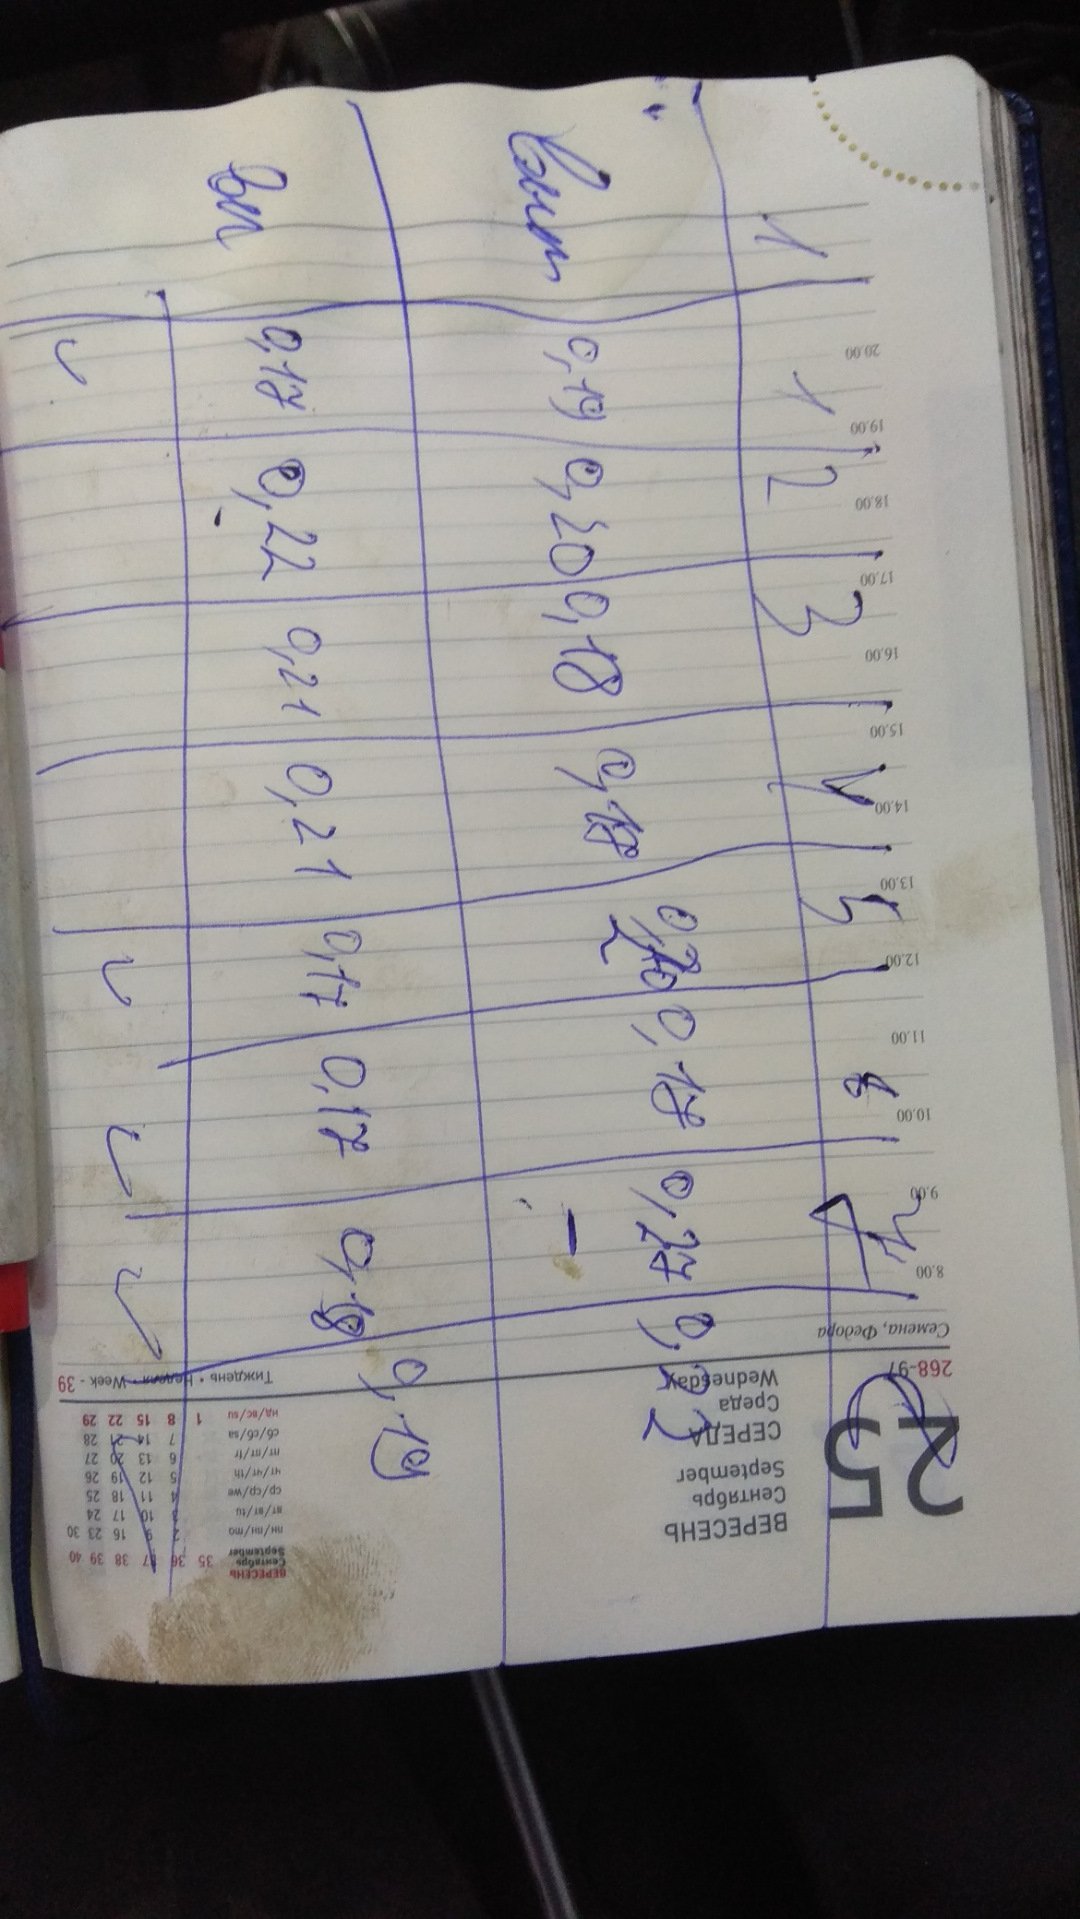 1 1 2 3 4 5 6 7 8
Вып 0,19 0,20 0,18 0,18 0,20 0,17 0,27 0,22
Вп 0,17 0,22 0,21 0,21 0,17 0,17 0,18 0,19
25
ВЕРЕСЕНЬ
Сентябрь
September
СЕРЕДА
Среда
Wednesday
268-97
Семена, Федора
8.00
9.00
10.00
11.00
12.00
13.00
14.00
15.00
16.00
17.00
18.00
19.00
20.00
ВЕРЕСЕНЬ
Сентябрь
September
35 36 37 38 39 40
пн/пн/mo 2 9 16 23 30
вт/вт/tu 3 10 17 24
ср/ср/we 4 11 18 25
чт/чт/th 5 12 19 26
пт/пт/fr 6 13 20 27
сб/сб/sa 7 14 21 28
нд/вс/su 1 8 15 22 29
Тиждень • Неделя • Week - 39